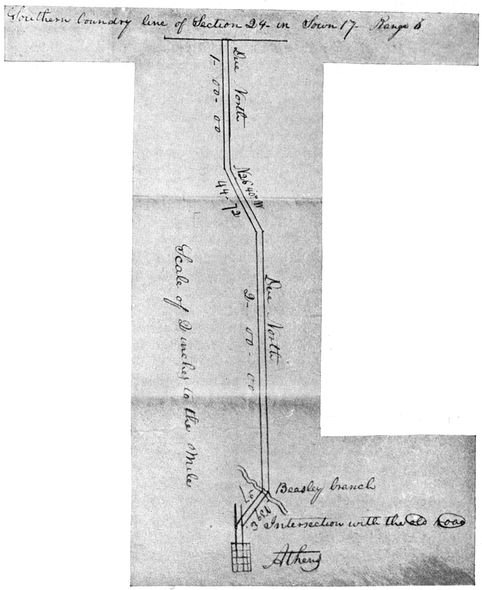 Southern boundry line of Section 24 in Town 17 Range 5
Due North
1 - 00 - 00
N 26° 40' W
44 - 72
Due North
2 - 00 - 00
Scale of 2 inches to the Mile
Beasley branch
Intersection with the old road
Athens